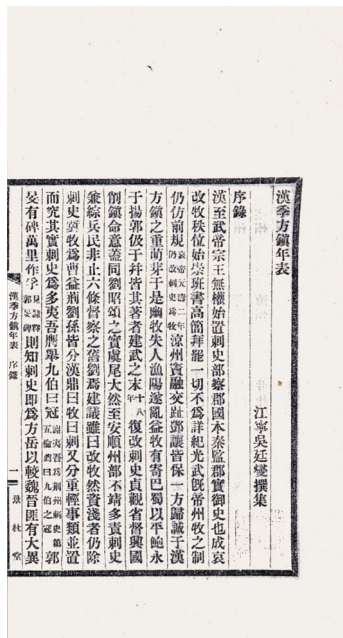 漢季方鎮年表
江寧吳廷燮撰集
序錄
漢至武帝宗王無權始置刺史部察郡國本秦監郡實御史也成哀
改牧秩位始崇班書高簡拜罷一切不爲詳紀光武旣帝州牧之制
仍仿前規哀帝元壽二年仍改刺史爲牧涼州竇融交趾鄧讓皆保一方歸誠于漢
方鎮之重萌芽于是幽牧失人漁陽遂亂益牧有寄巴蜀以平鮑永
于揚郭伋于幷皆其著者建武之末十八年復改刺史貞觀省督興國
削鎮命意蓋同劉昭頌之實虞尾大然至安順州部不靖多責刺史
兼綜兵民非止六條督察之舊劉焉建議雖曰改牧然資淺者仍除
刺史豫牧爲曹益荊劉孫皆分漢鼎曰牧曰刺又分重輕事類並置
而究其實刺史爲多夷吾膺舉九伯曰冠謝夷吾爲荊州刺史第五倫薦曰九伯之冠郭
旻有碑萬里作孚見隸釋郭旻碑則知刺史即爲方岳以較魏晉匪有大異
漢季方鎮年表 序錄 一 景杜堂